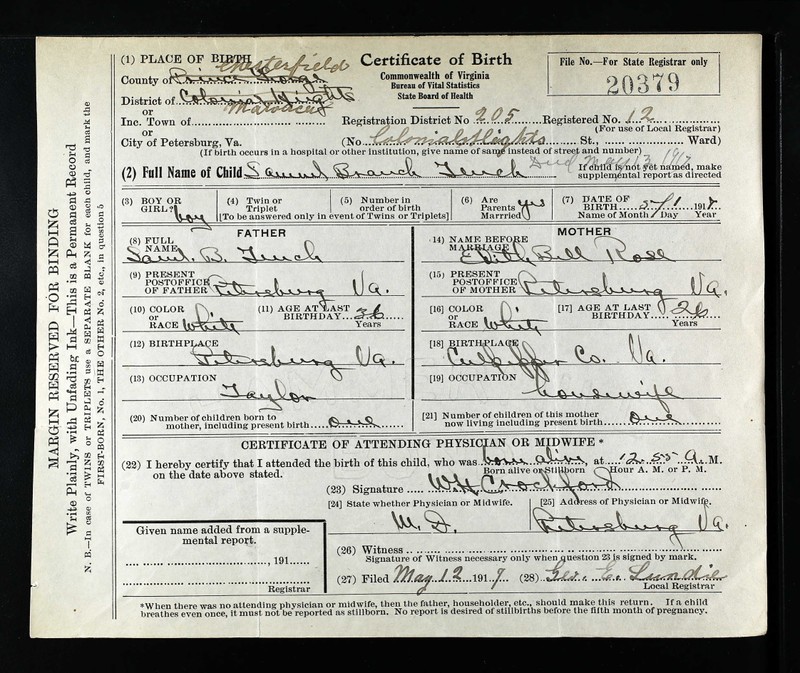 MARGIN RESERVED FOR BINDING
Write Plainly, with Unfading Ink—This is a Permanent Record
N. B.—In case of TWINS or TRIPLETS use a SEPARATE BLANK for each child, and mark the
FIRST-BORN, No. 1, THE OTHER No. 2, etc., in question 5
(1) PLACE OF BIRTH
Chesterfield
County of Prince George
District of Colonial Heights
or
Matoaca
Inc. Town of
or
City of Petersburg, Va.
Certificate of Birth
Commonwealth of Virginia
Bureau of Vital Statistics
State Board of Health
File No.—For State Registrar only
20379
Registration District No 205 Registered No. 12
(For use of Local Registrar)
(No. Colonial Heights St., Ward)
(If birth occurs in a hospital or other institution, give name of same instead of street and number)
Died May 13, 1917
(2) Full Name of Child Samuel Branch Tench
If child is not yet named, make
supplemental report as directed
(3) BOY OR
GIRL? boy
(4) Twin or
Triplet
(5) Number in
order of birth
[To be answered only in event of Twins or Triplets]
(6) Are
Parents
Marrried yes
(7) DATE OF
BIRTH 5/1 1917
Name of Month Day Year
FATHER
(8) FULL
NAME
Saml. B. Tench
(9) PRESENT
POSTOFFICE
OF FATHER Petersburg Va.
(10) COLOR
or
RACE White
(11) AGE AT LAST
BIRTHDAY 36
Years
(12) BIRTHPLACE
Petersburg Va.
(13) OCCUPATION
Taylor
(20) Number of children born to
mother, including present birth one
MOTHER
14) NAME BEFORE
MARRIAGE
Edith Bell Rose
(15) PRESENT
POSTOFFICE
OF MOTHER Petersburg Va.
[16] COLOR
or
RACE White
[17] AGE AT LAST
BIRTHDAY 26
Years
[18] BIRTHPLACE
Culpepper Co. Va.
[19] OCCUPATION
housewife
[21] Number of children of this mother
now living including present birth one
CERTIFICATE OF ATTENDING PHYSICIAN OR MIDWIFE *
(22) I hereby certify that I attended the birth of this child, who was born alive, at 12.55 A. M.
on the date above stated.
Born alive or Stillborn Hour A. M. or P. M.
(23) Signature W H Crockford
[24] State whether Physician or Midwife.
M. D.
[25] Address of Physician or Midwife.
Petersburg Va.
Given name added from a supple-
mental report.
, 191
Registrar
(26) Witness
Signature of Witness necessary only when question 23 is signed by mark.
(27) Filed May 12 1917 (28) Geo. E.
Local Registrar
*When there was no attending physician or midwife, then the father, householder, etc., should make this return. If a child
breathes even once, it must not be reported as stillborn. No report is desired of stillbirths before the fifth month of pregnancy.